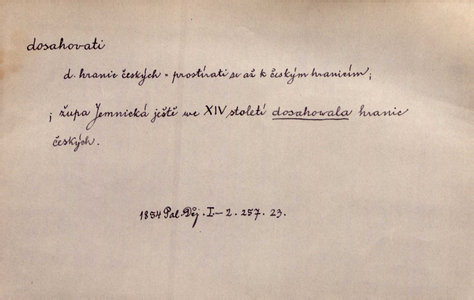 dosahovati
d. hranic českých = prostírati se až k českým hranicím;
; župa Jemnická ještě we XIV století dosahowala hranic
českých.
1854 Pal. Děj. I–2. 257. 23.